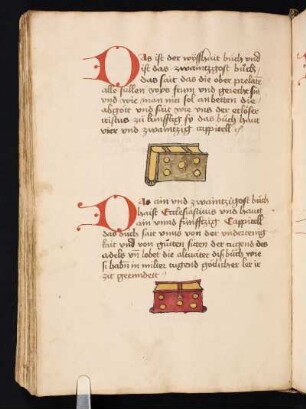 Das ist der wysshait buch vnd
ist das zwaintzgost buch
das sait das die ober prelate
alle sullen wys sein vnd gerecht sin
vnd wie man nit sol anbetten die
abgott vnd sait vns der erloser
cristus zu kunfftig so das buch haut
vier vnd zwaintzig cappitell
Das ain vnd zwaintzigost buch
haist Ecclesiasticus vnd haut
ain vnnd funfftzig Cappitell
das buch sait vnns von der
vnd von gutten sitten der tugend des
adels vnd lobet die altvatter dis buch wie
si habn in tugend gotlicher ler